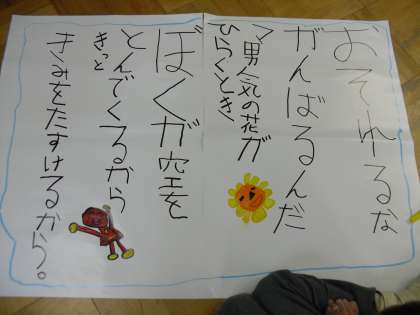 おそれるな
がんばるんだ
勇気の花が
ひらくとき
ぼくが空を
とんでくるから
きっと
きみをたすけるから。